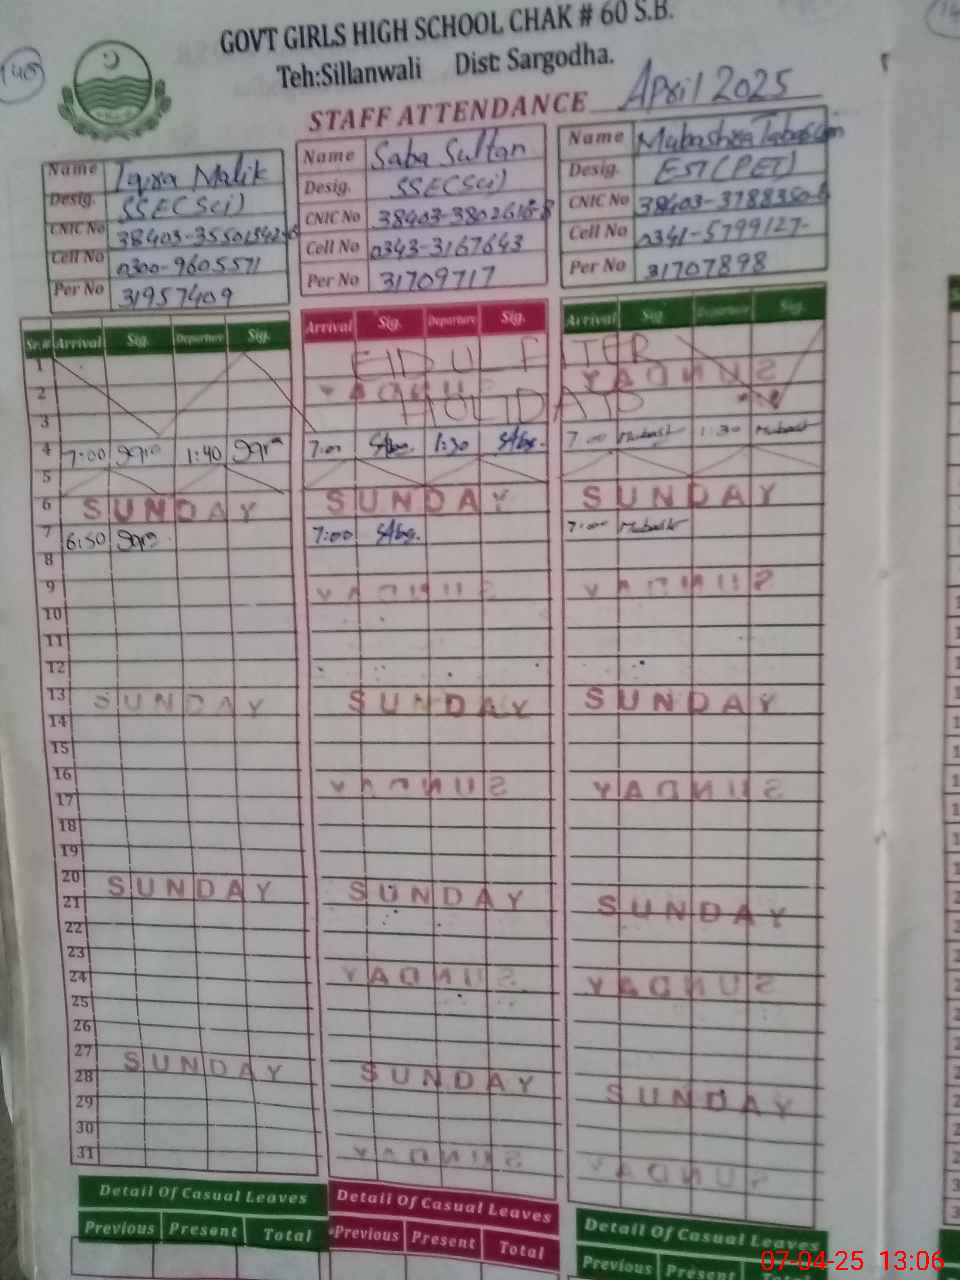 GOVT GIRLS HIGH SCHOOL CHAK # 60 S.B.
Teh:Sillanwali Dist: Sargodha.
STAFF ATTENDANCE April 2025
Name Iqra Malik
Desig. SSE(Sci)
CNIC No
Cell No 0300-9605571
Per No 31957409
Name Saba Sultan
Desig. SSE(Sci)
CNIC No 38403-3802616-8
Cell No 0343-3167643
Per No 31709717
Name Mubashra Tabassum
Desig. EST(PET)
CNIC No 38403-3788350-6
Cell No 0341-5799127
Per No 31707898
Sr.# Arrival Sig. Departure Sig. Arrival Sig. Departure Sig. Arrival Sig. Departure Sig.
1 EID UL FITER
2
3 HOLIDAYS
4 7:00 Iqra 1:40 Iqra 7:00 Saba 1:30 Saba 7:00 Mubash 1:30 Mubash
5
6 SUNDAY SUNDAY SUNDAY
7 6:50 Iqra 7:00 Saba 7:00 Mubash
8
9
10
11
12
13 SUNDAY SUNDAY SUNDAY
14
15
16
17
18
19
20 SUNDAY SUNDAY SUNDAY
21
22
23
24
25
26
27 SUNDAY SUNDAY SUNDAY
28
29
30
31
Detail Of Casual Leaves Detail Of Casual Leaves Detail Of Casual Leaves
Previous Present Total Previous Present Total Previous Present Total
07-04-25 13:06